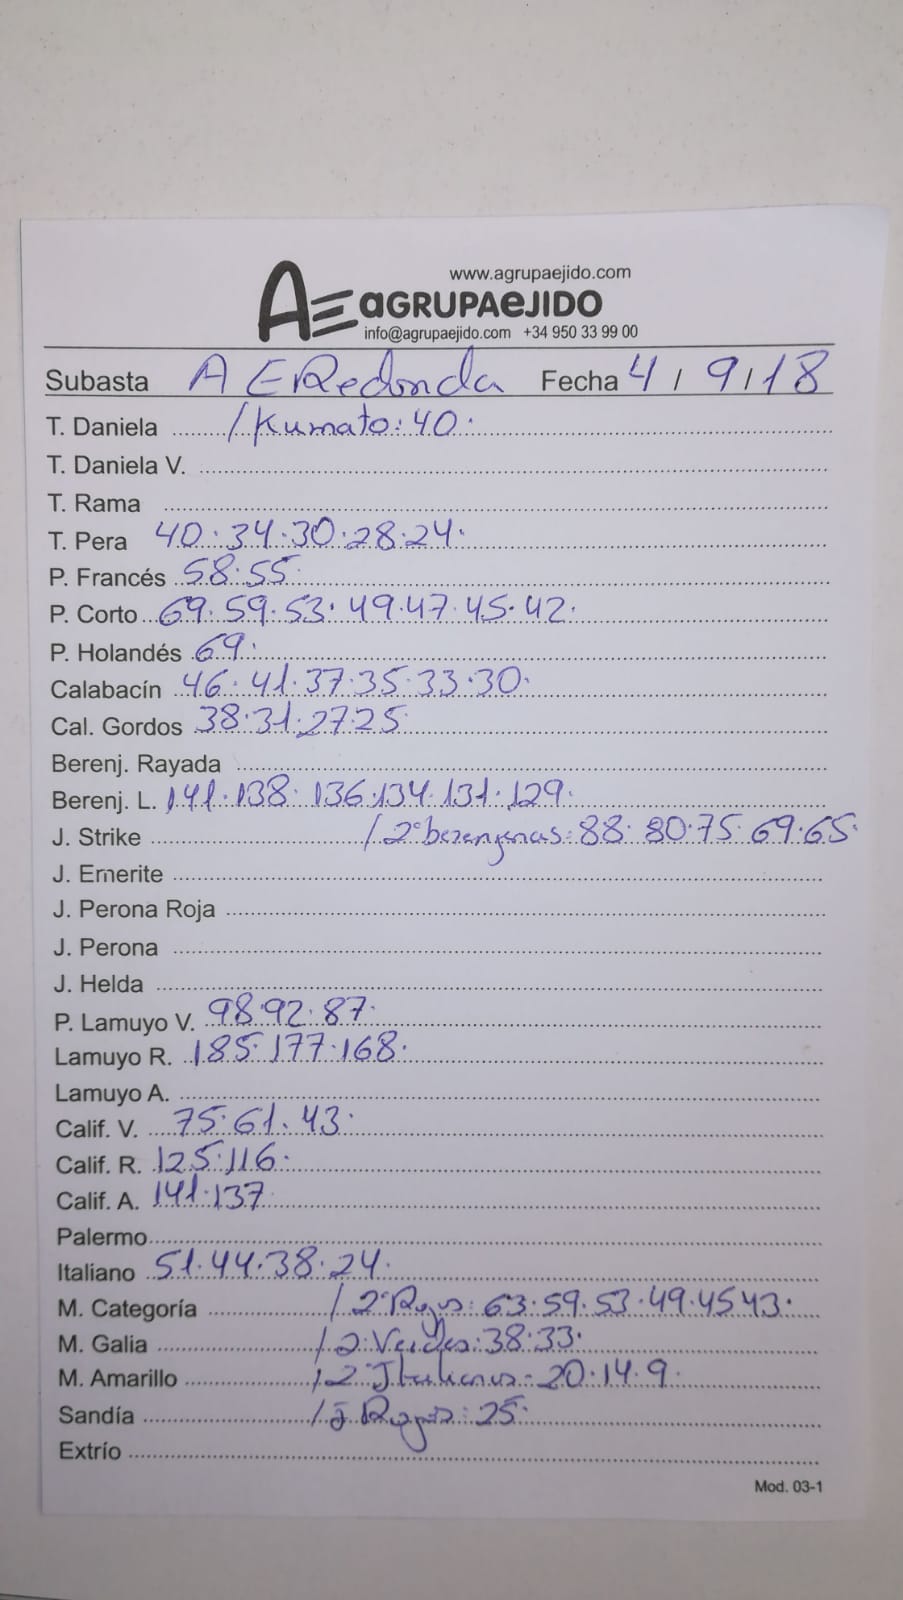 www.agrupaejido.com
AE aGRUPAeJIDO
info@agrupaejido.com +34 950 33 99 00
Subasta A E Redonda Fecha 4 / 9 / 18
T. Daniela / Kumato: 40.
T. Daniela V.
T. Rama
T. Pera 40. 34. 30. 28. 24.
P. Francés 58. 55.
P. Corto 69. 59. 53. 49. 47. 45. 42.
P. Holandés 69.
Calabacín 46. 41. 37. 35. 33. 30.
Cal. Gordos 38. 31. 27. 25.
Berenj. Rayada
Berenj. L. 141. 138. 136. 134. 131. 129.
J. Strike / 2ª berenjenas: 88. 80. 75. 69. 65.
J. Emerite
J. Perona Roja
J. Perona
J. Helda
P. Lamuyo V. 98. 92. 87.
Lamuyo R. 185. 177. 168.
Lamuyo A.
Calif. V. 75. 61. 43.
Calif. R. 125. 116.
Calif. A. 141. 137
Palermo
Italiano 51. 44. 38. 24.
M. Categoría / 2ª Rojos: 63. 59. 53. 49. 45 43.
M. Galia / 2ª Verdes: 38. 33.
M. Amarillo / 2ª Italianos - 20. 14. 9.
Sandía / Rojos: 25.
Extrío
Mod. 03-1